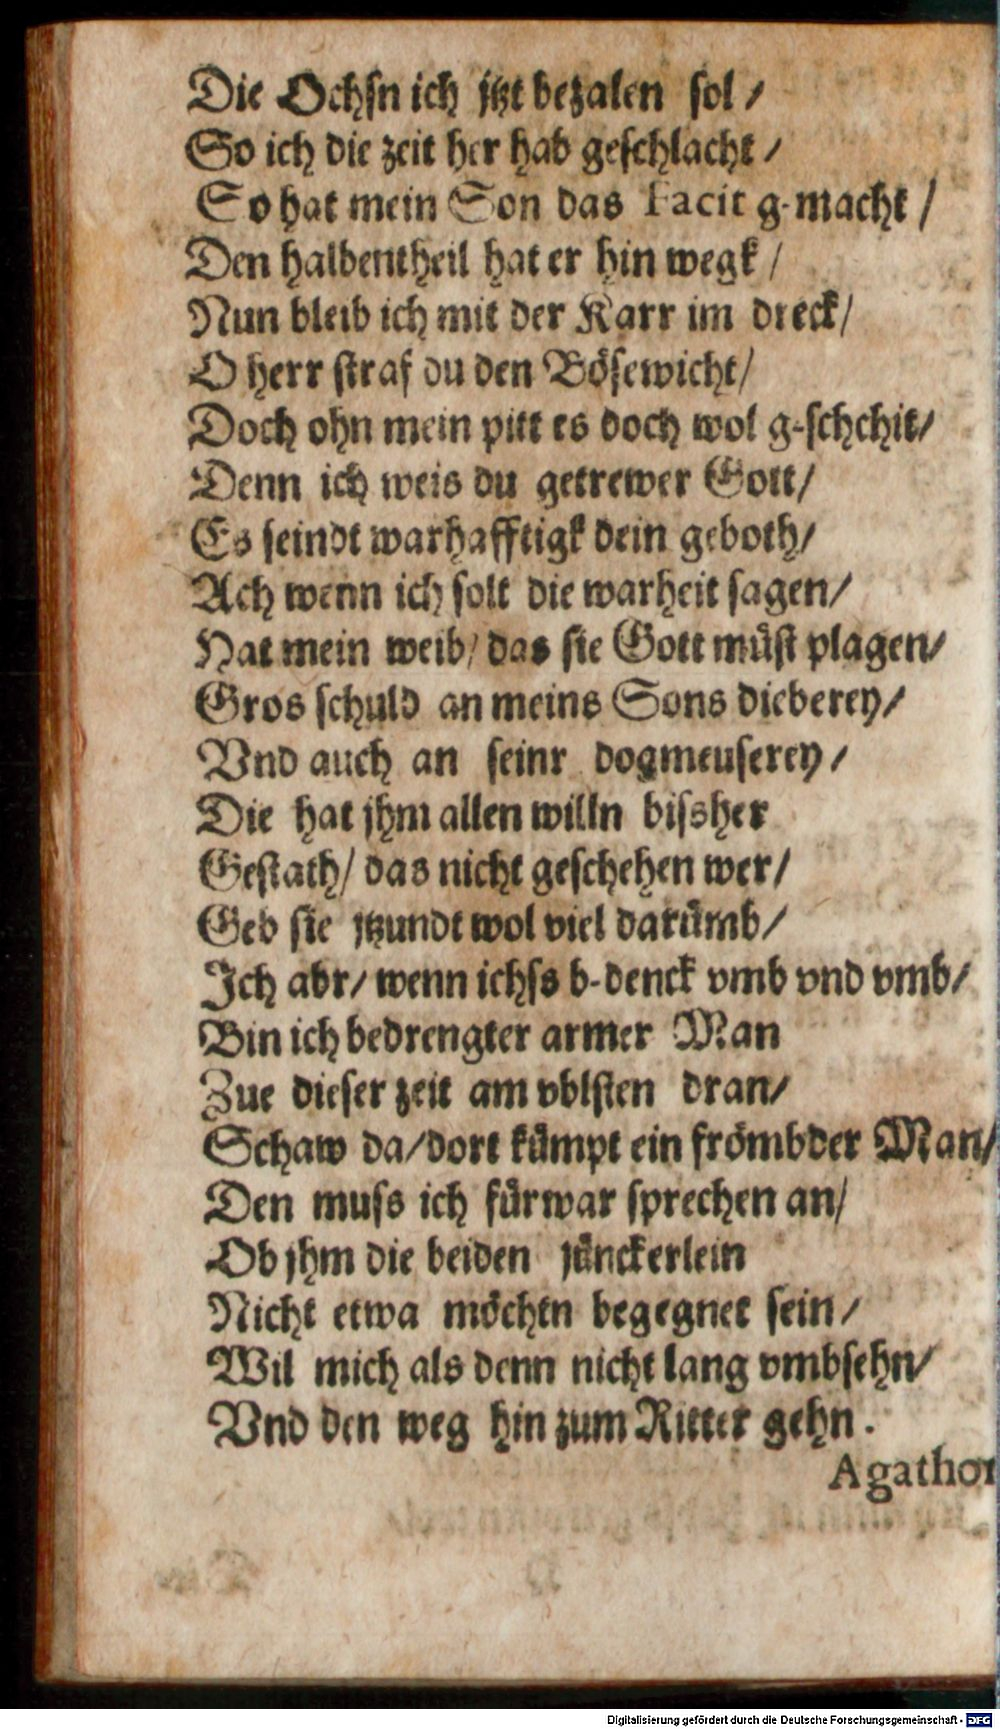 Die Ochsn ich jtzt bezalen sol /
So ich die zeit her hab geschlacht /
So hat mein Son das Facit g-macht /
Den halbentheil hat er hin wegk /
Nun bleib ich mit der Karr im dreck /
O herr straf du den Bösewicht /
Doch ohn mein pitt es doch wol g-schchit /
Denn ich weis du getrewer Gott /
Es seindt warhafftigk dein geboth /
Ach wenn ich solt die warheit sagen /
Hat mein weib / das sie Gott müst plagen /
Gros schuld an meins Sons dieberey /
Vnd auch an seinr dogmeuserey /
Die hat jhm allen willn bissher
Gestath / das nicht geschehen wer /
Geb sie jtzundt wol viel darümb /
Ich abr / wenn ichss b-denck vmb vnd vmb /
Bin ich bedrengter armer Man
Zue dieser zeit am vblsten dran /
Schaw da / dort kümpt ein frömbder Man /
Den muss ich fürwar sprechen an /
Ob jhm die beiden jünckerlein
Nicht etwa möchtn begegnet sein /
Wil mich als denn nicht lang vmbsehn /
Vnd den weg hin zum Ritter gehn.
Agathon
Digitalisierung gefördert durch die Deutsche Forschungsgemeinschaft - DFG